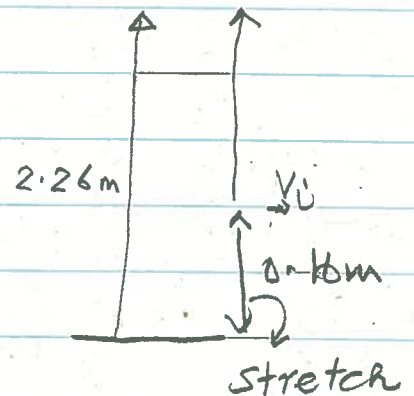 2.26m
Vi
0.10m
stretch